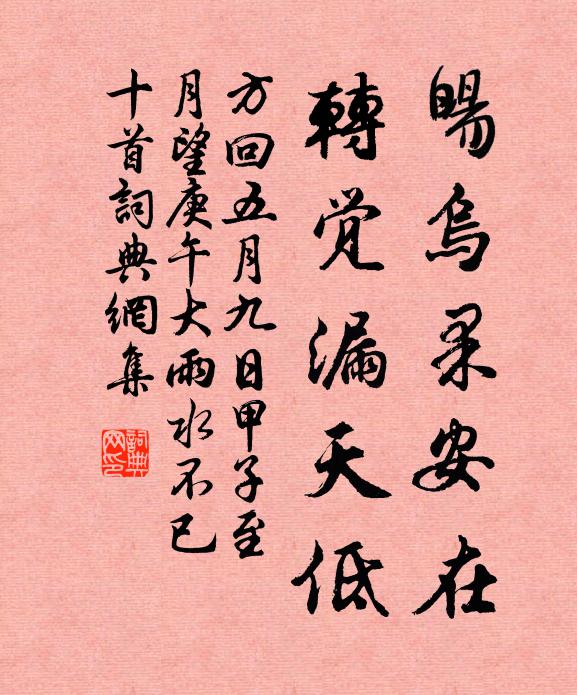 暘烏果安在
轉覺漏天低
方回五月九日甲子至
月望庚午大雨水不已
十首詞典網集
詞典網印